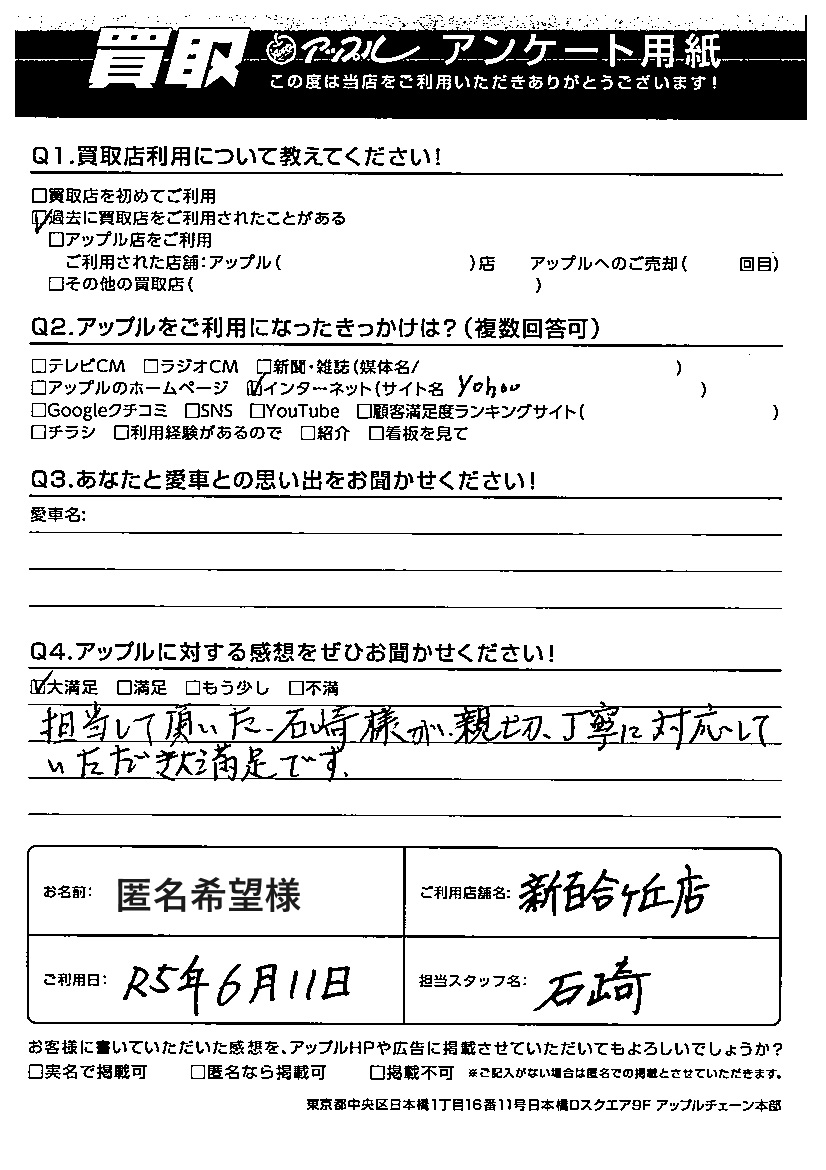 買取 アップル アンケート用紙
この度は当店をご利用いただきありがとうございます!
Q1.買取店利用について教えてください!
□買取店を初めてご利用
☑過去に買取店をご利用されたことがある
□アップル店をご利用
ご利用された店舗:アップル( )店 アップルへのご売却( 回目)
□その他の買取店( )
Q2.アップルをご利用になったきっかけは?(複数回答可)
□テレビCM □ラジオCM □新聞・雑誌(媒体名/ )
□アップルのホームページ ☑インターネット(サイト名 Yahoo )
□Googleクチコミ □SNS □YouTube □顧客満足度ランキングサイト( )
□チラシ □利用経験があるので □紹介 □看板を見て
Q3.あなたと愛車との思い出をお聞かせください!
愛車名:
Q4.アップルに対する感想をぜひお聞かせください!
☑大満足 □満足 □もう少し □不満
担当して頂いた、石崎様が、親切、丁寧に対応して
いただき大満足です。
お名前: 匿名希望様 ご利用店舗名: 新百合ヶ丘店
ご利用日: R5年6月11日 担当スタッフ名: 石崎
お客様に書いていただいた感想を、アップルHPや広告に掲載させていただいてもよろしいでしょうか?
□実名で掲載可 □匿名なら掲載可 □掲載不可 ※ご記入がない場合は匿名での掲載とさせていただきます。
東京都中央区日本橋1丁目16番11号日本橋ロスクエア9F アップルチェーン本部